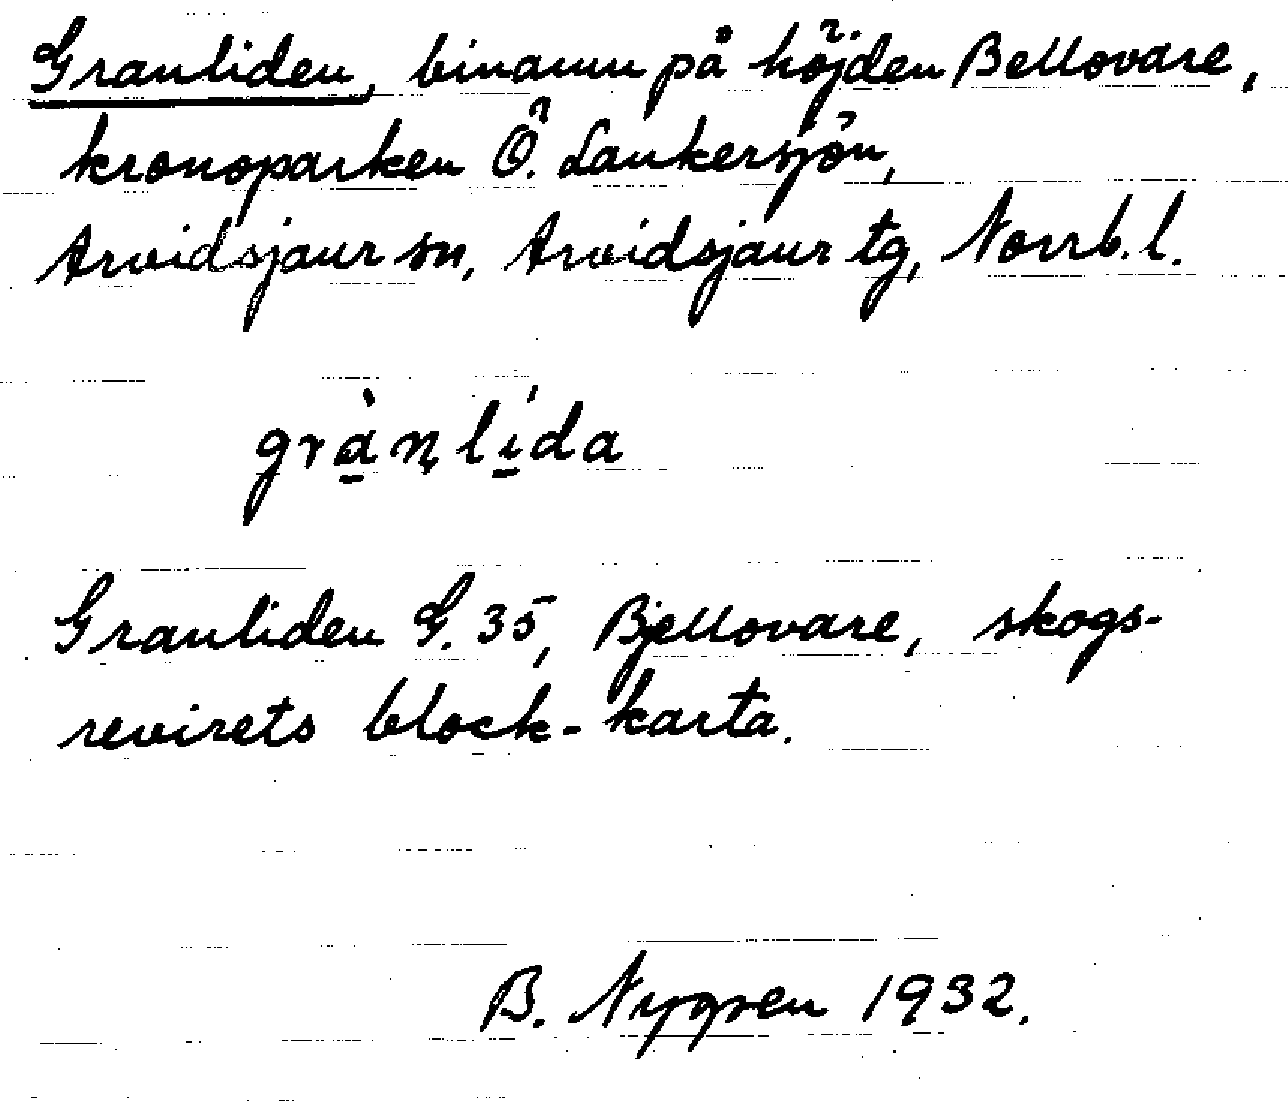 Granliden, binamn på höjden Bellovare,
kronoparken Ö. Lankersjön,
Arvidsjaur sn, Arvidsjaur tg, Norrb. l.
grànlída
Granliden G. 35, Bjellovare, skogs-
revirets block-karta.
B. Nygren 1932.